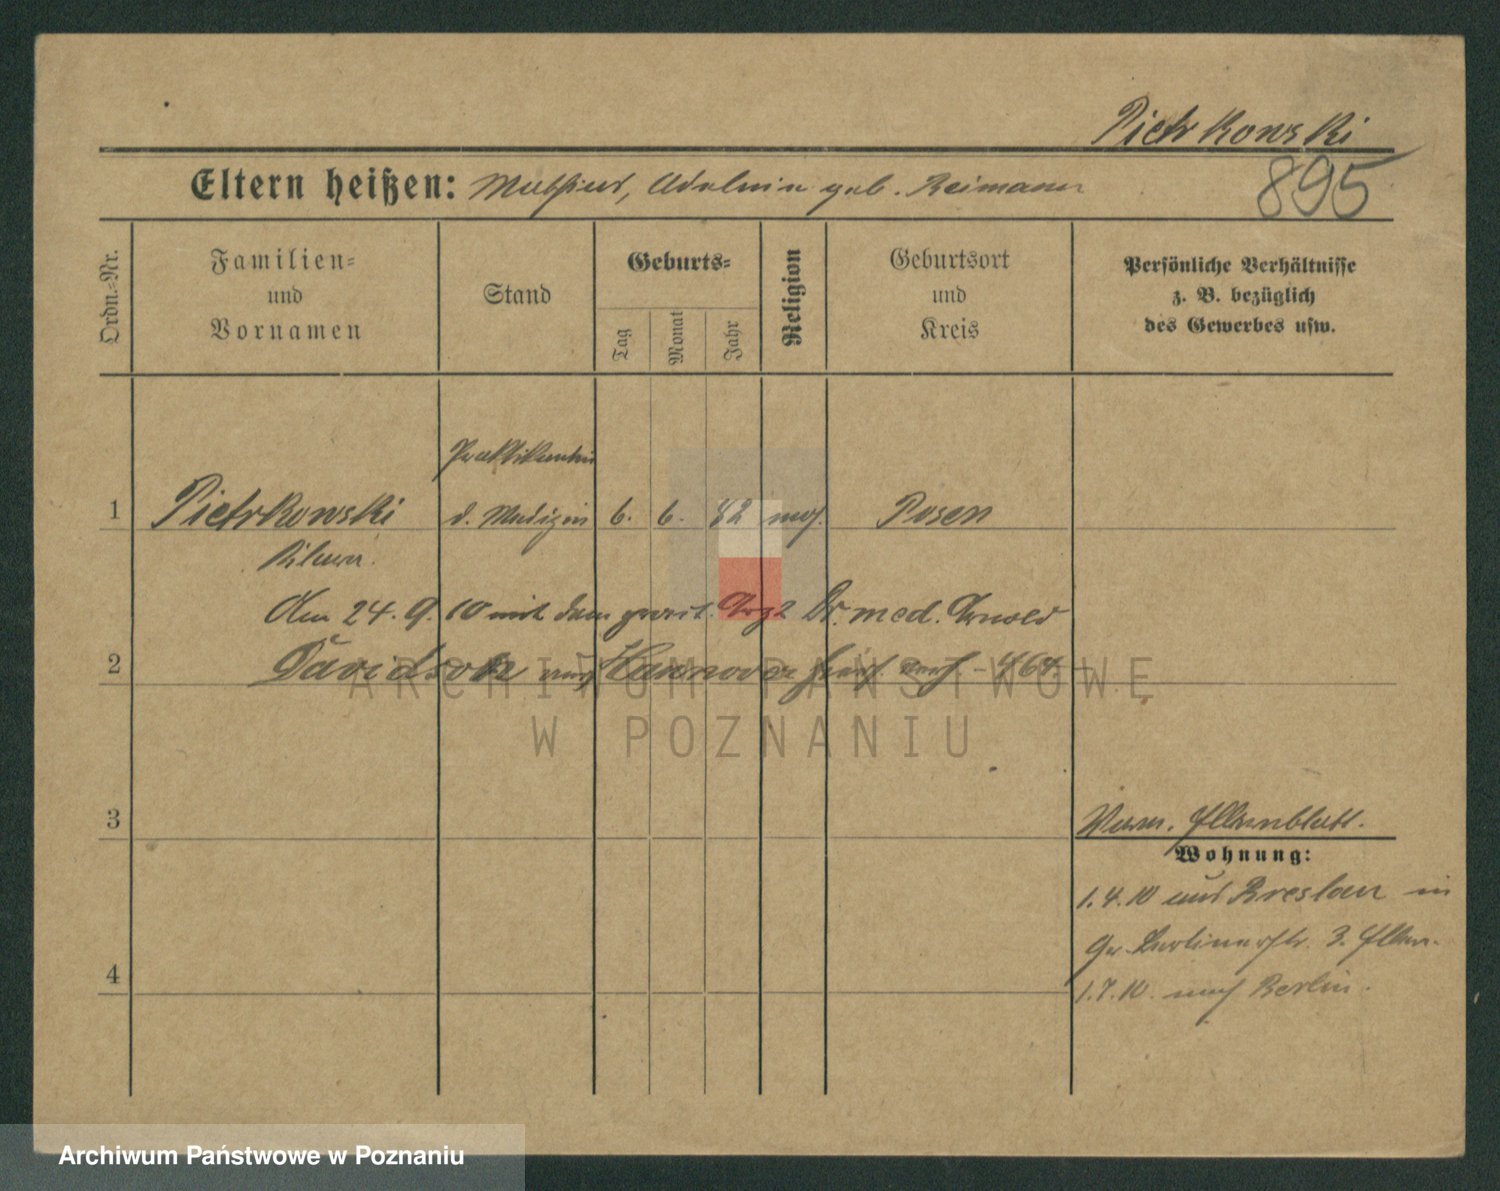 Pietrkowski
895
Eltern heißen: Mathias, Adelheid geb. Reimann
Ordn.-Nr.
Familien-
und
Vornamen
Stand
Geburts-
Tag
Monat
Jahr
Religion
Geburtsort
und
Kreis
Persönliche Verhältnisse
z. B. bezüglich
des Gewerbes usw.
Praktikantin
1 Pietrkowski d. Medizin 6. 6. 82 mos. Posen
Am 24. 9. 10 mit dem prakt. Arzt Dr. med. Arnold
2 Davidsohn aus Hannover
3
Verm. Ellenblatt.
Wohnung:
1.4.10 aus Breslau in
Gr. Berlinerstr. 3. Eltern.
4
1.7.10. nach Berlin.
ARCHIWUM PAŃSTWOWE
W POZNANIU
Archiwum Państwowe w Poznaniu